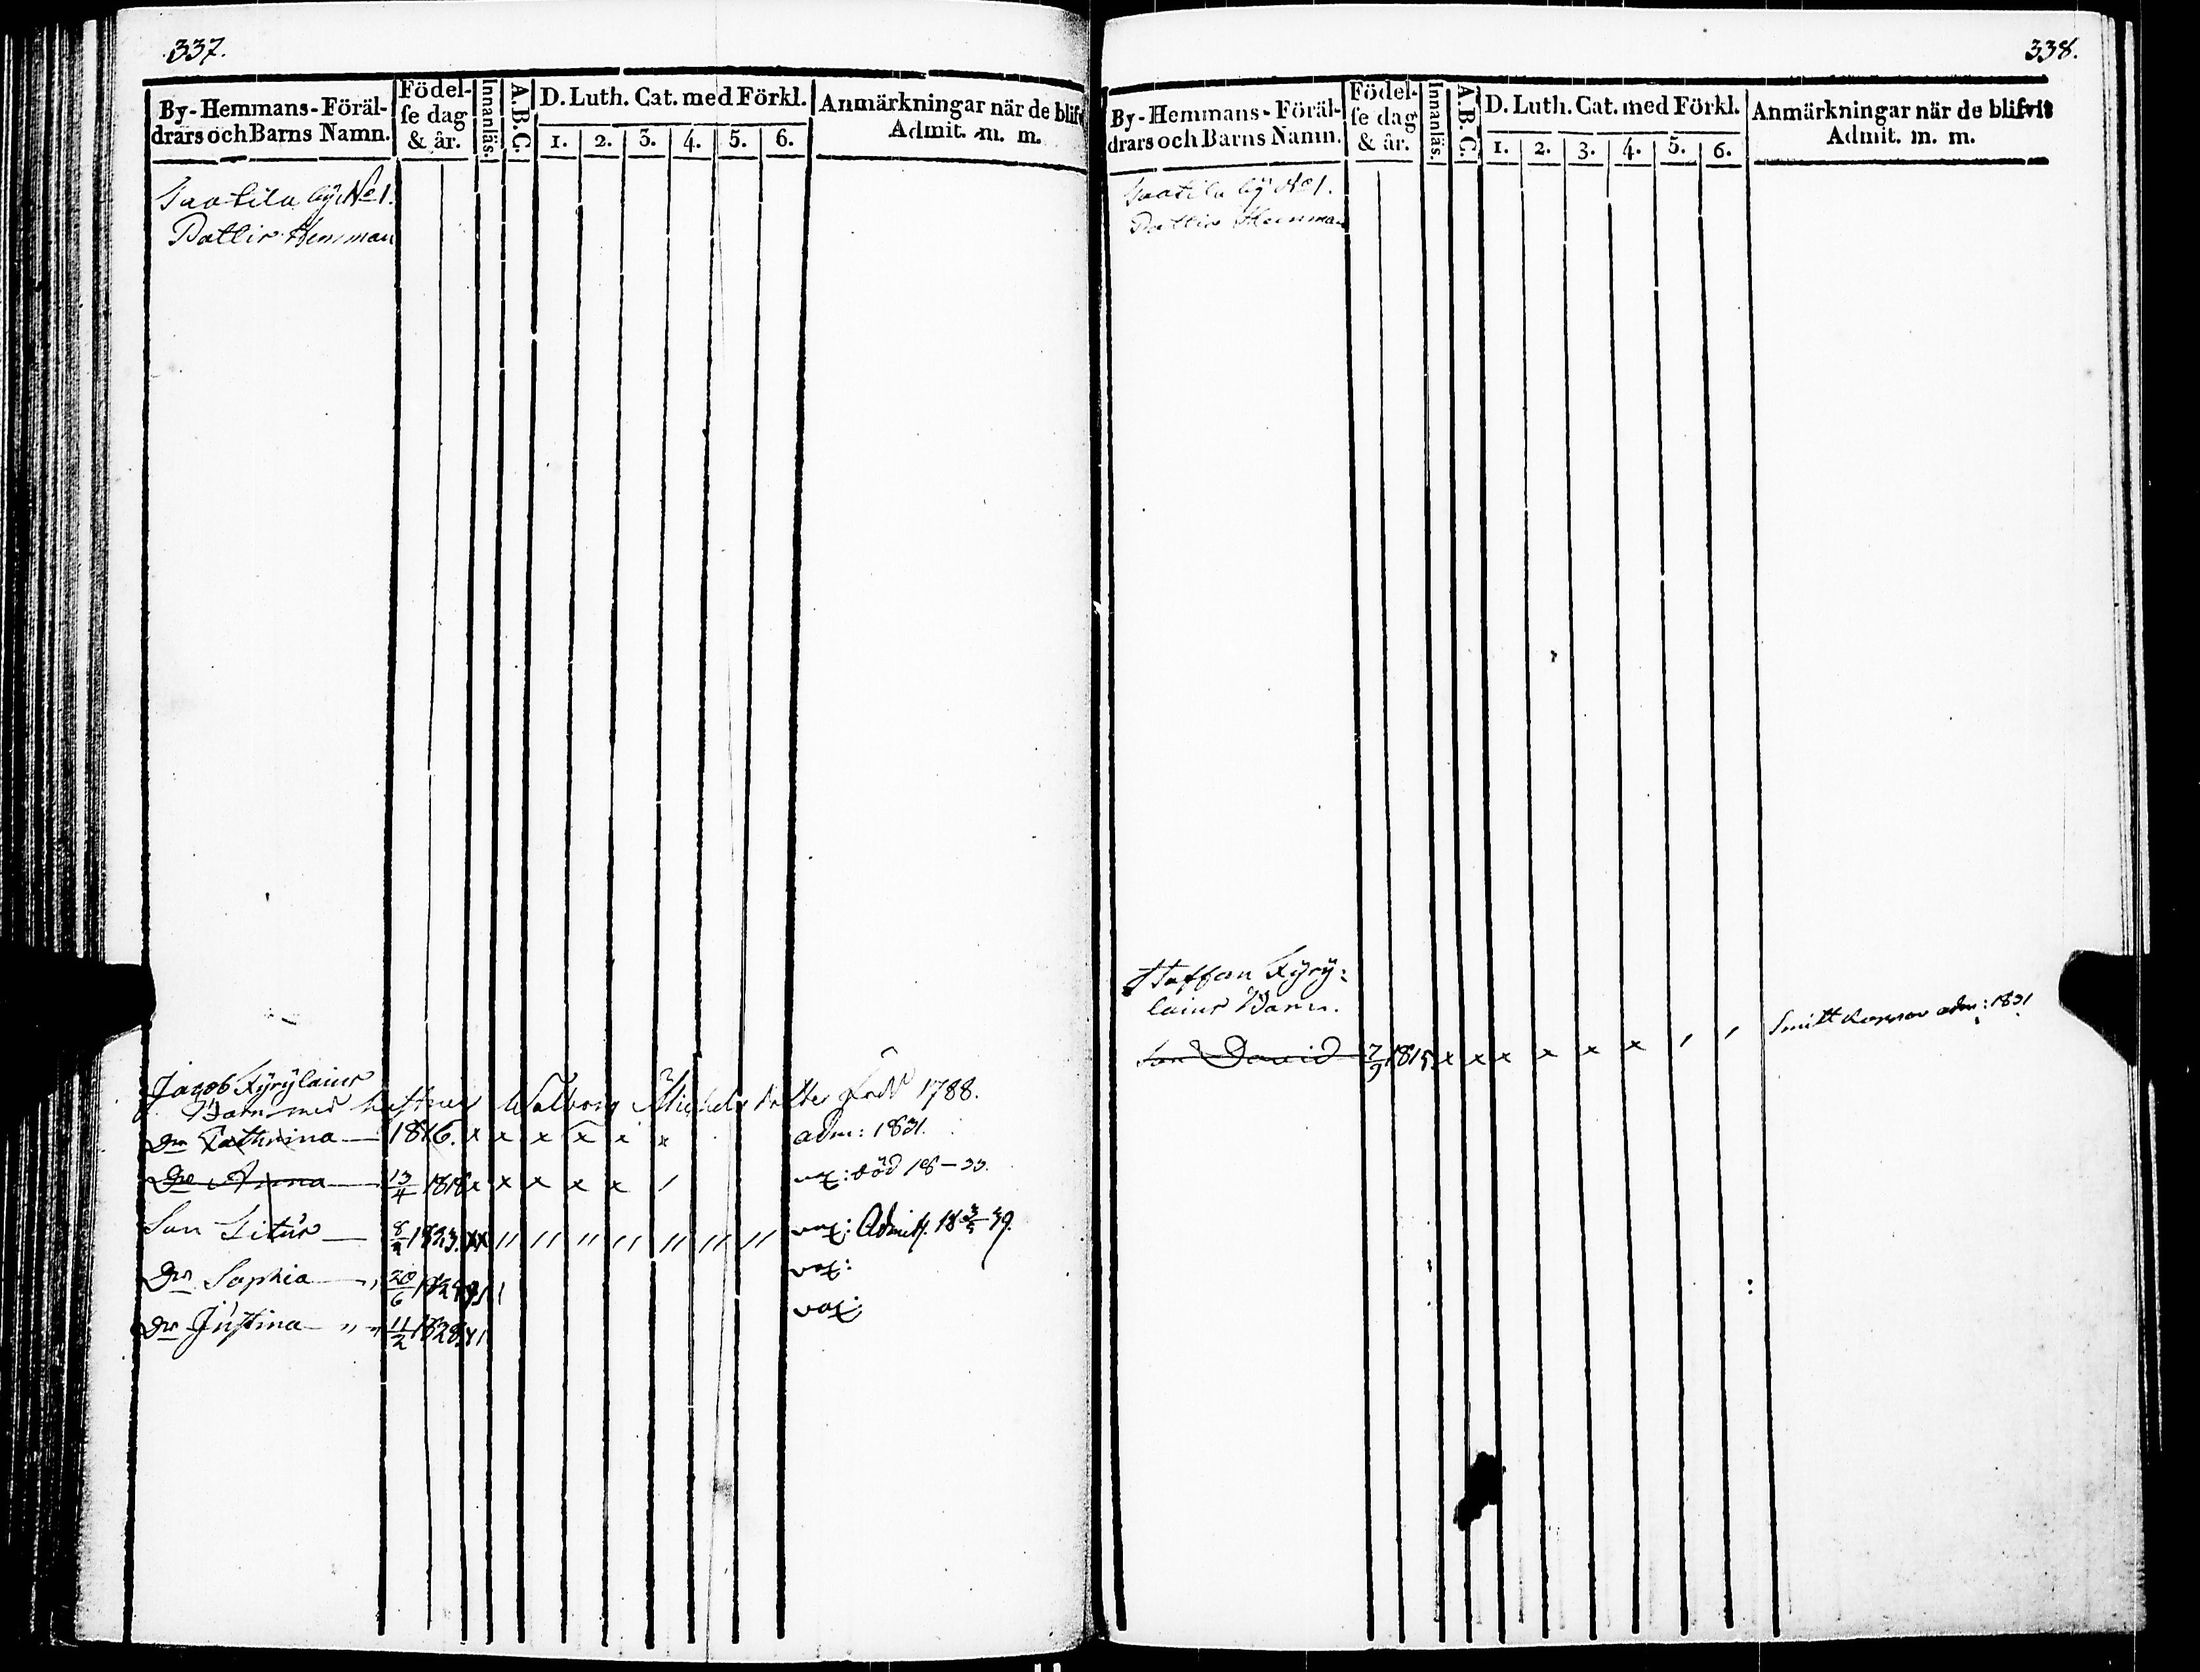 337.
By-Hemmans-Föräl-
drars och Barns Namn.
Födel-
se dag
& år.
Innanläs.
A.B.C.
D. Luth. Cat. med Förkl.
1. 2. 3. 4. 5. 6.
Anmärkningar när de blifv
Admit. m. m.
by No 1.
Hemman
Jacob Kyryläins
Barn med hustrun Walborg Michels dotter född 1788.
Dr Cathrina 1816. x x x x x x adm: 1831.
Dr Anna 13/4 1818 x x x x x / vax: död 18-33.
Son 1823. xx // // // // // // // vax: Admitt. 39.
Dr Sophia 20/6 vax:
Dr Justina 11/2 1828 vax:
338.
By-Hemmans-Föräl-
drars och Barns Namn.
Födel-
se dag
& år.
Innanläs.
A.B.C.
D. Luth. Cat. med Förkl.
1. 2. 3. 4. 5. 6.
Anmärkningar när de blifvit
Admit. m. m.
by No 1.
Hemman
Staffan Kyry:
läins Barn.
Son David 7/9 1815 x x x x x x / / adm: 1831